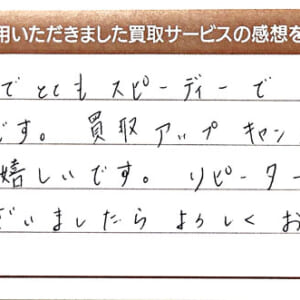 用いただきました買取サービスの感想を
でとてもスピーディーで
です。買取アップキャン
嬉しいです。リピーター
ざいましたらよろしくお